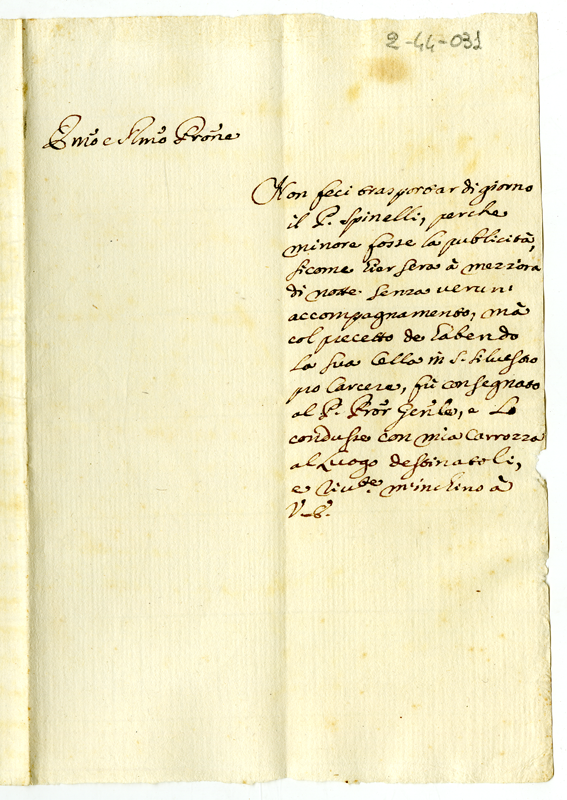 2-44-031
Emo e Rmo Prone
Non feci trasportar di giorno
il P. Spinelli, perche
minore fosse la publicità,
sicome hier sera à mezz'ora
di notte senza verun'
accompagnamento, mà
col precetto de habendo
la sua Cella in S. Silvestro
pro Carcere, fù consegnato
al P. Pror Genle, e lo
condusse con mia Carrozza
al Luogo destinatoli,
e rivte m'inchino à
V. E.